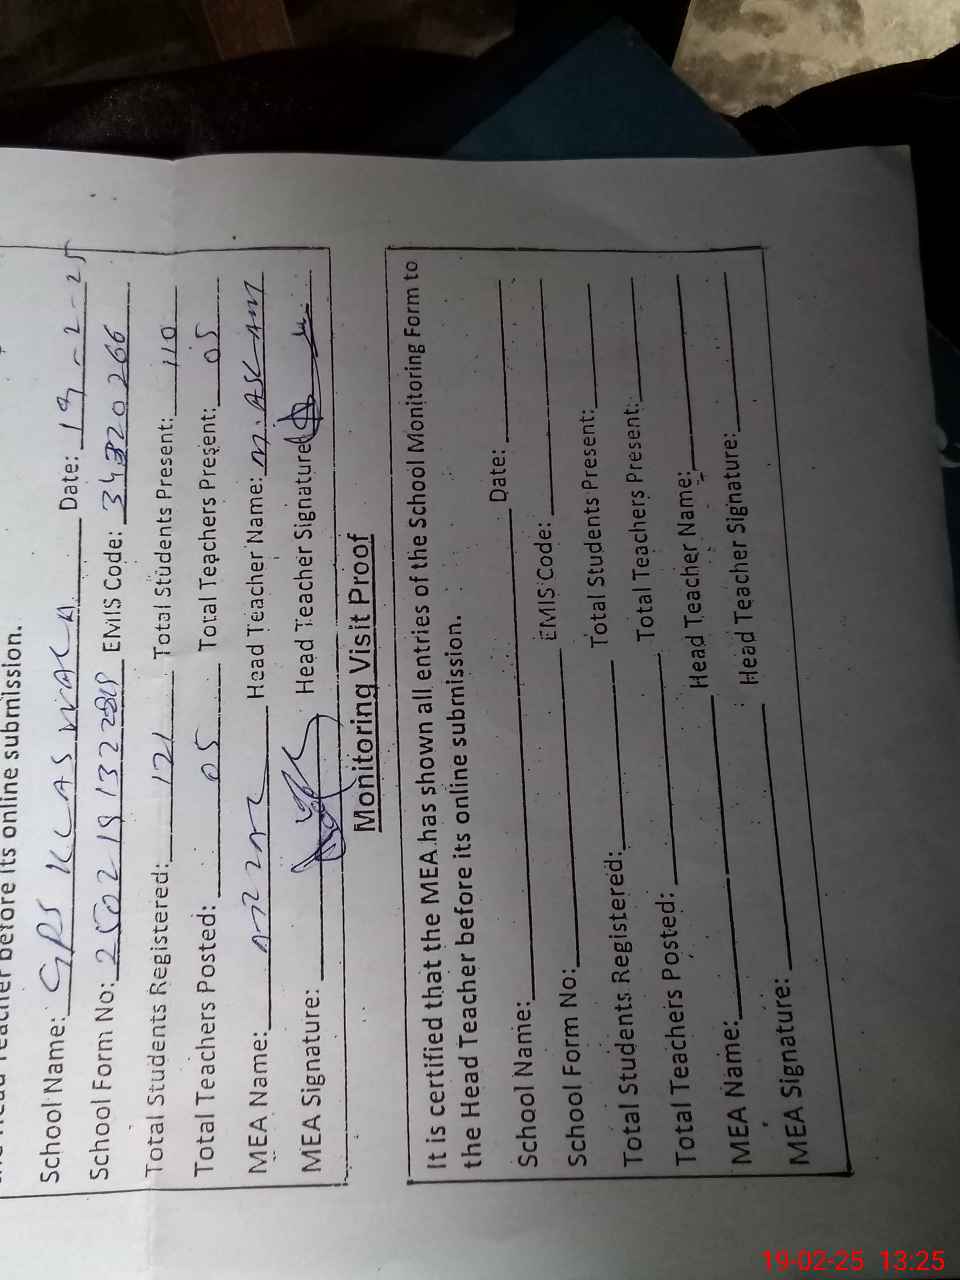 the Head Teacher before its online submission.
School Name: GPS KLASWALA Date: 19-2-25
School Form No: EMIS Code: 34320266
Total Students Registered: 121 Total Students Present: 110
Total Teachers Posted: 05 Total Teachers Present: 05
MEA Name: Head Teacher Name: M. ASLAM
MEA Signature: Head Teacher Signature
Monitoring Visit Proof
It is certified that the MEA has shown all entries of the School Monitoring Form to
the Head Teacher before its online submission.
School Name: Date:
School Form No: EMIS Code:
Total Students Registered: Total Students Present:
Total Teachers Posted: Total Teachers Present:
MEA Name: Head Teacher Name:
MEA Signature: Head Teacher Signature:
19-02-25 13:25